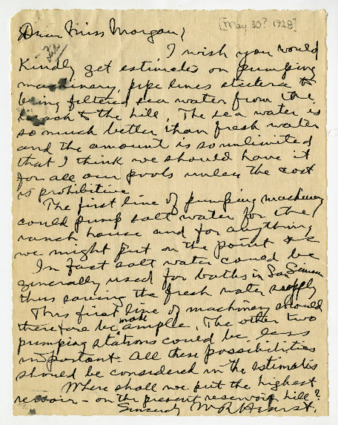 [May 30? 1928]
Dear Miss Morgan,
I wish you would
Kindly get estimates on pumping
machinery, pipe lines etcetera to
bring filtered sea water from the
to the hill. The sea water is
so much better than fresh water
and the amount is so unlimited
that I think we should have it
for all our pools unless the cost
is prohibitive
The first line of pumping machinery
could pump salt water for the
ranch house and for anything
we might put on the point etc
In fact salt water could be
generally used for baths in San Simeon
thus saving the fresh water supply
This first line of machinery should
therefore be ample. The other two
pumping stations could be less
important. All these possibilities
should be considered in the estimates
Where shall we put the highest
resevoir - on the present reservoir hill?
Sincerely W R Hearst.